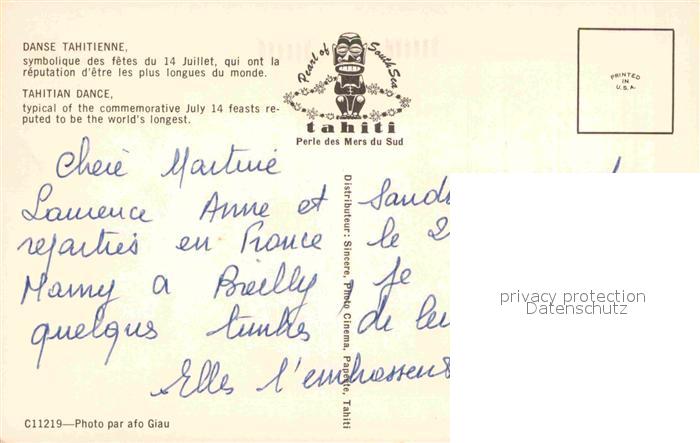 DANSE TAHITIENNE,
symbolique des fêtes du 14 Juillet, qui ont la
réputation d'être les plus longues du monde.
TAHITIAN DANCE,
typical of the commemorative July 14 feasts re-
puted to be the world's longest.
Pearl of South Sea
tahiti
Perle des Mers du Sud
PRINTED
IN
U.S.A.
Distributeur: Sincere, Photo Cinema, Papeete, Tahiti
Laurence Anne et
en France le 2
a je
quelques timbres de leu
Elles t'embrassent
privacy protection
Datenschutz
C11219—Photo par afo Giau